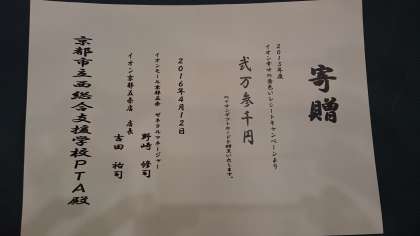 寄贈
2015年度
イオン幸せの黄色いレシートキャンペーンより
弐万参千円
のイオンギフトカードを贈呈いたします。
2016年4月12日
イオンモール京都五条 ゼネラルマネージャー
野崎 修司
イオン京都五条店 店長
吉田 祐司
京都市立西総合支援学校PTA殿